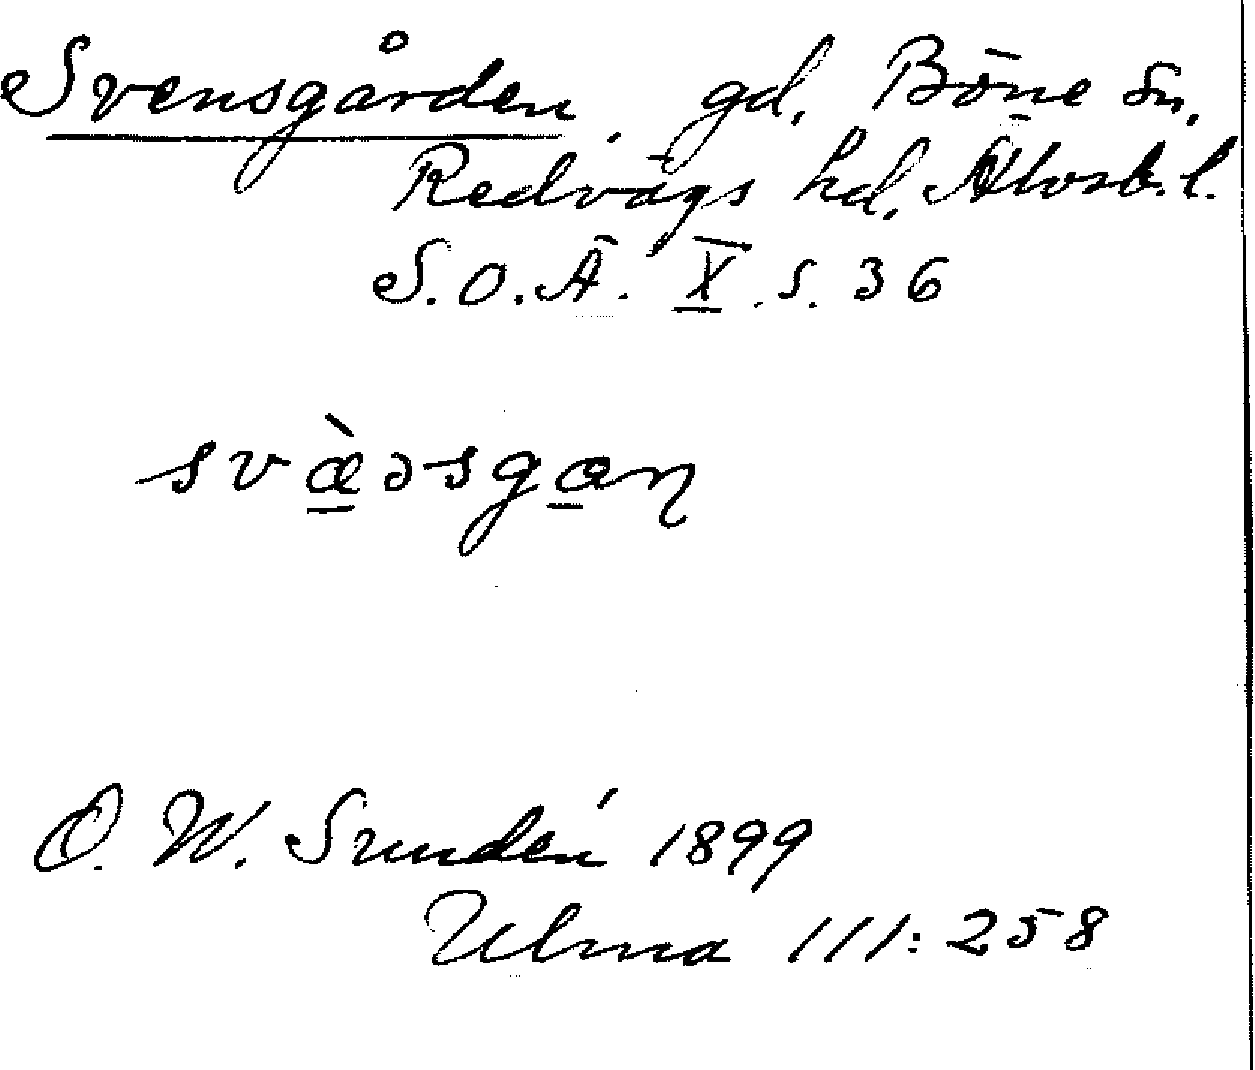 Svensgården, gd. Böne sn,
Redvägs hd, Älvsb. l.
S.O.Ä. X. s. 36
svæ̀əsgaɳ
O. W. Sundén 1899
Ulma 111:258